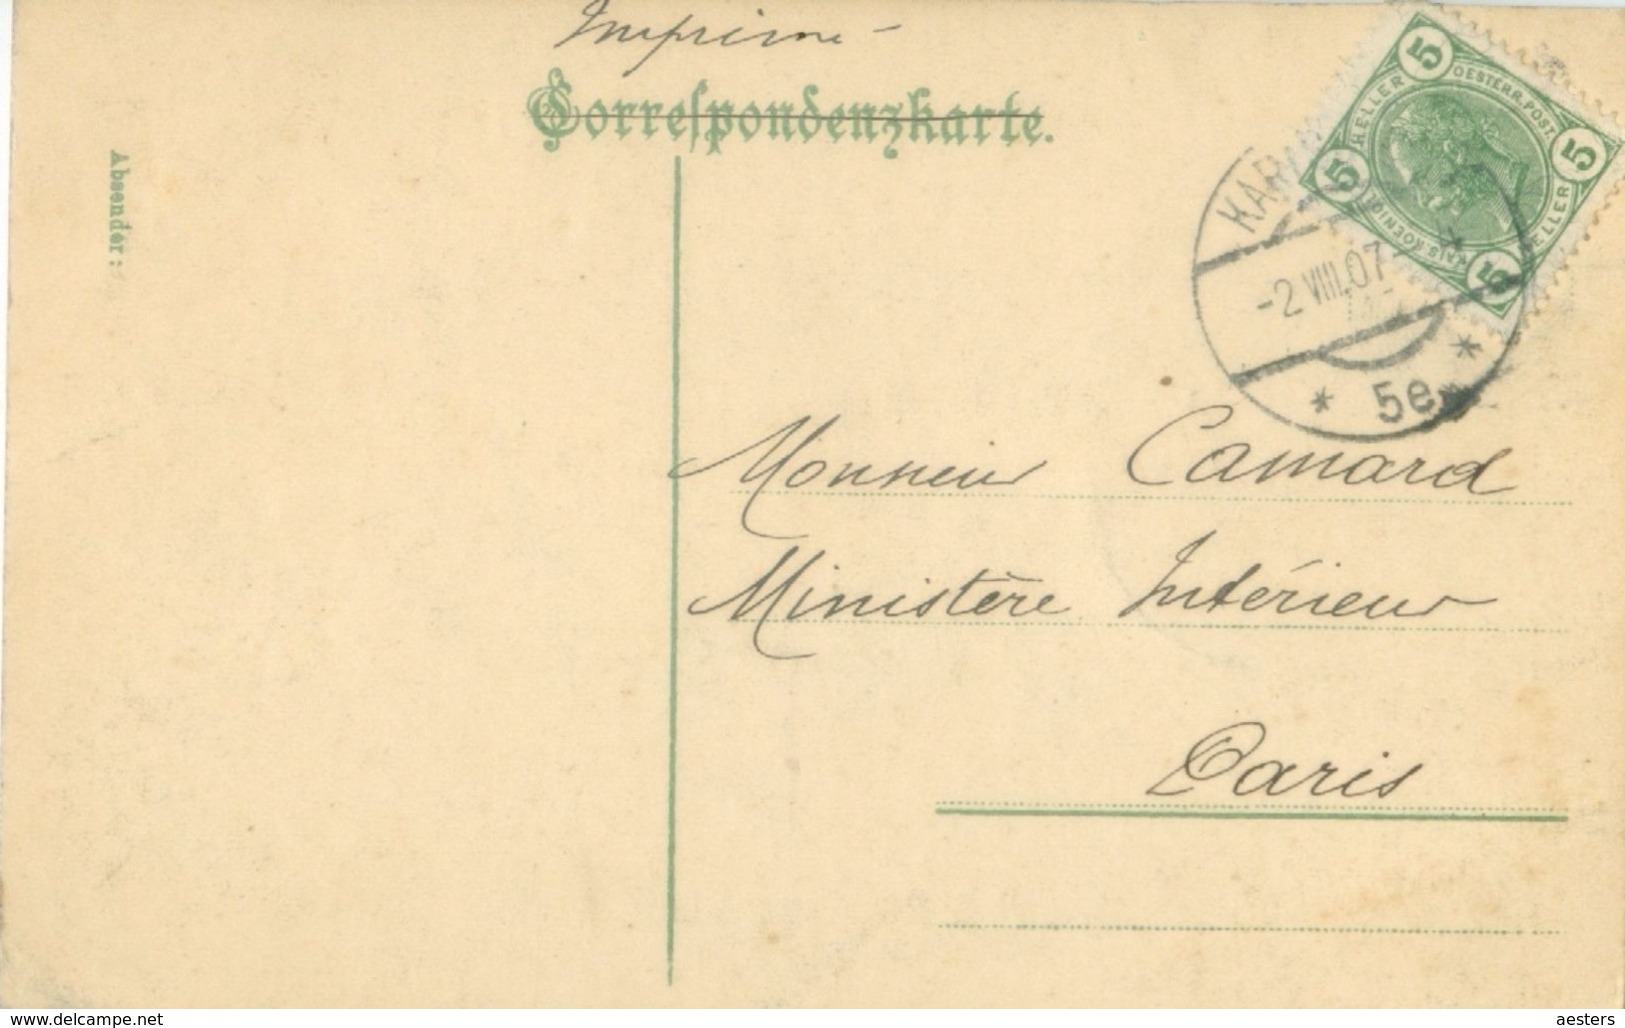 Imprimé
Correspondenzkarte.
Absender:
5 OESTERR. POST. 5
HELLER
HELLER
5 KAIS. KOENIGL. 5
-2 VIII.07
* 5e *
Monsieur Camard
Ministère Intérieur
Paris
www.delcampe.net
aesters